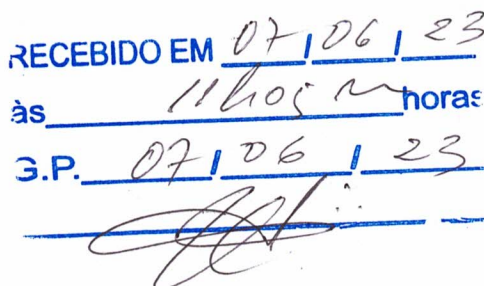 RECEBIDO EM 07/06/23
às 11h05m horas
G.P. 07/06/23